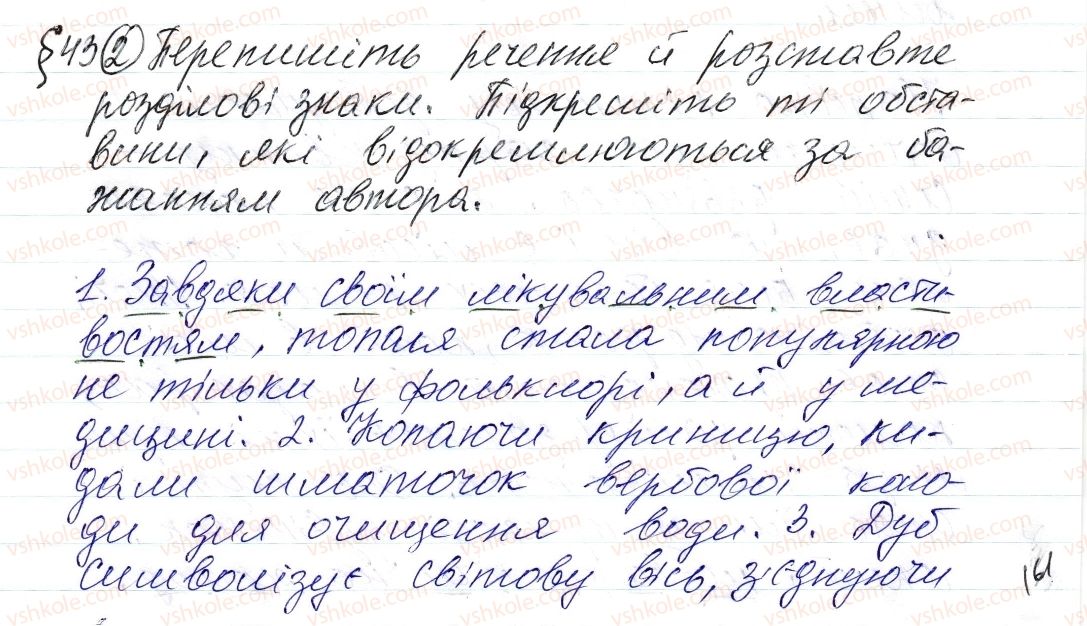 §43 2 Перепишіть речення й розставте
розділові знаки. Підкресліть ті обста-
вини, які відокремлюються за ба-
жанням автора.
1. Завдяки своїм лікувальним власти-
востям, тополя стала популярною
не тільки у фольклорі, а й у ме-
дицині. 2. Копаючи криницю, ки-
дали шматочок вербової коло-
ди для очищення води. 3. Дуб
символізує світову вісь, з'єднуючи
161